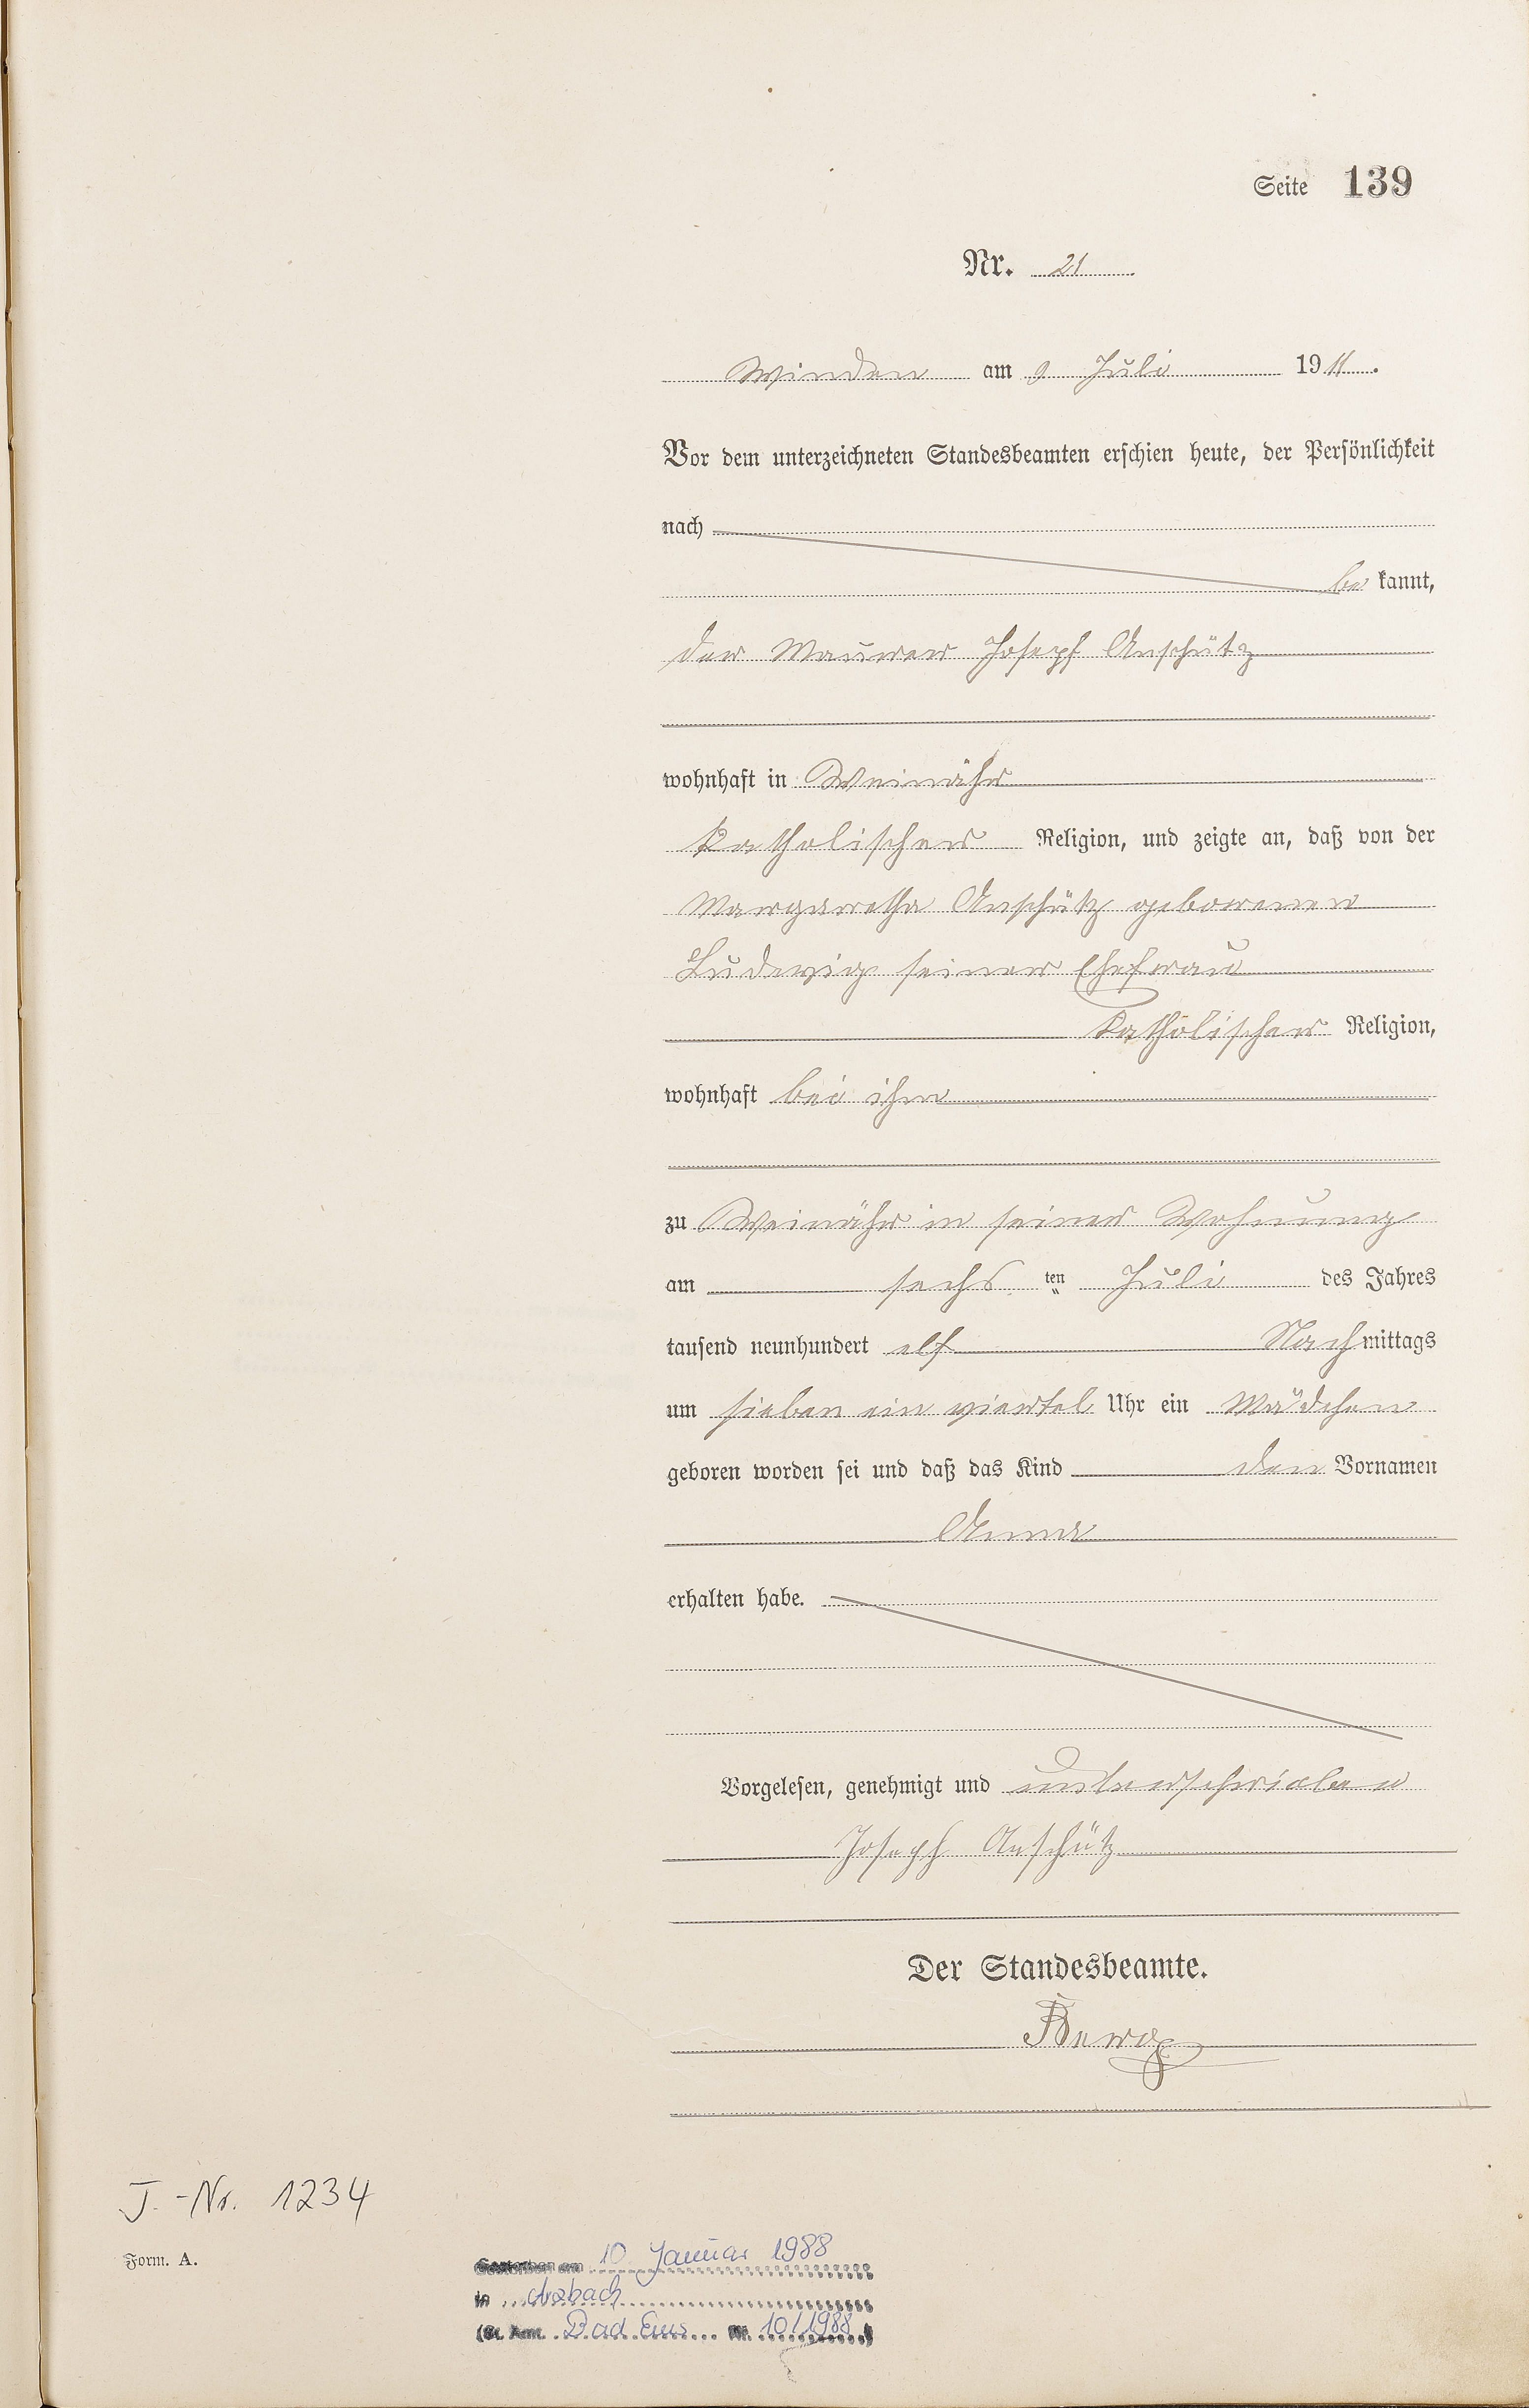 Seite 139
Nr. 21
Winden am 9 Juli 1911.
Vor dem unterzeichneten Standesbeamten erschien heute, der Persönlichkeit
nach
be kannt,
der Maurer Joseph Anschütz
wohnhaft in Weinähr
katholischer Religion, und zeigte an, daß von der
Margaretha Anschütz geborenen
Ludewig seiner Ehefrau
katholischer Religion,
wohnhaft bei ihm
zu Weinähr in seiner Wohnung
am sechs ten Juli des Jahres
tausend neunhundert elf Nachmittags
um sieben ein viertel Uhr ein Mädchen
geboren worden sei und daß das Kind den Vornamen
Anna
erhalten habe.
Vorgelesen, genehmigt und unterschrieben
Joseph Anschütz
Der Standesbeamte.
J.-Nr. 1234
Form. A.
Gestorben am 10. Januar 1988
in Arzbach
(St. Amt. Bad Ems Nr. 10/1988)